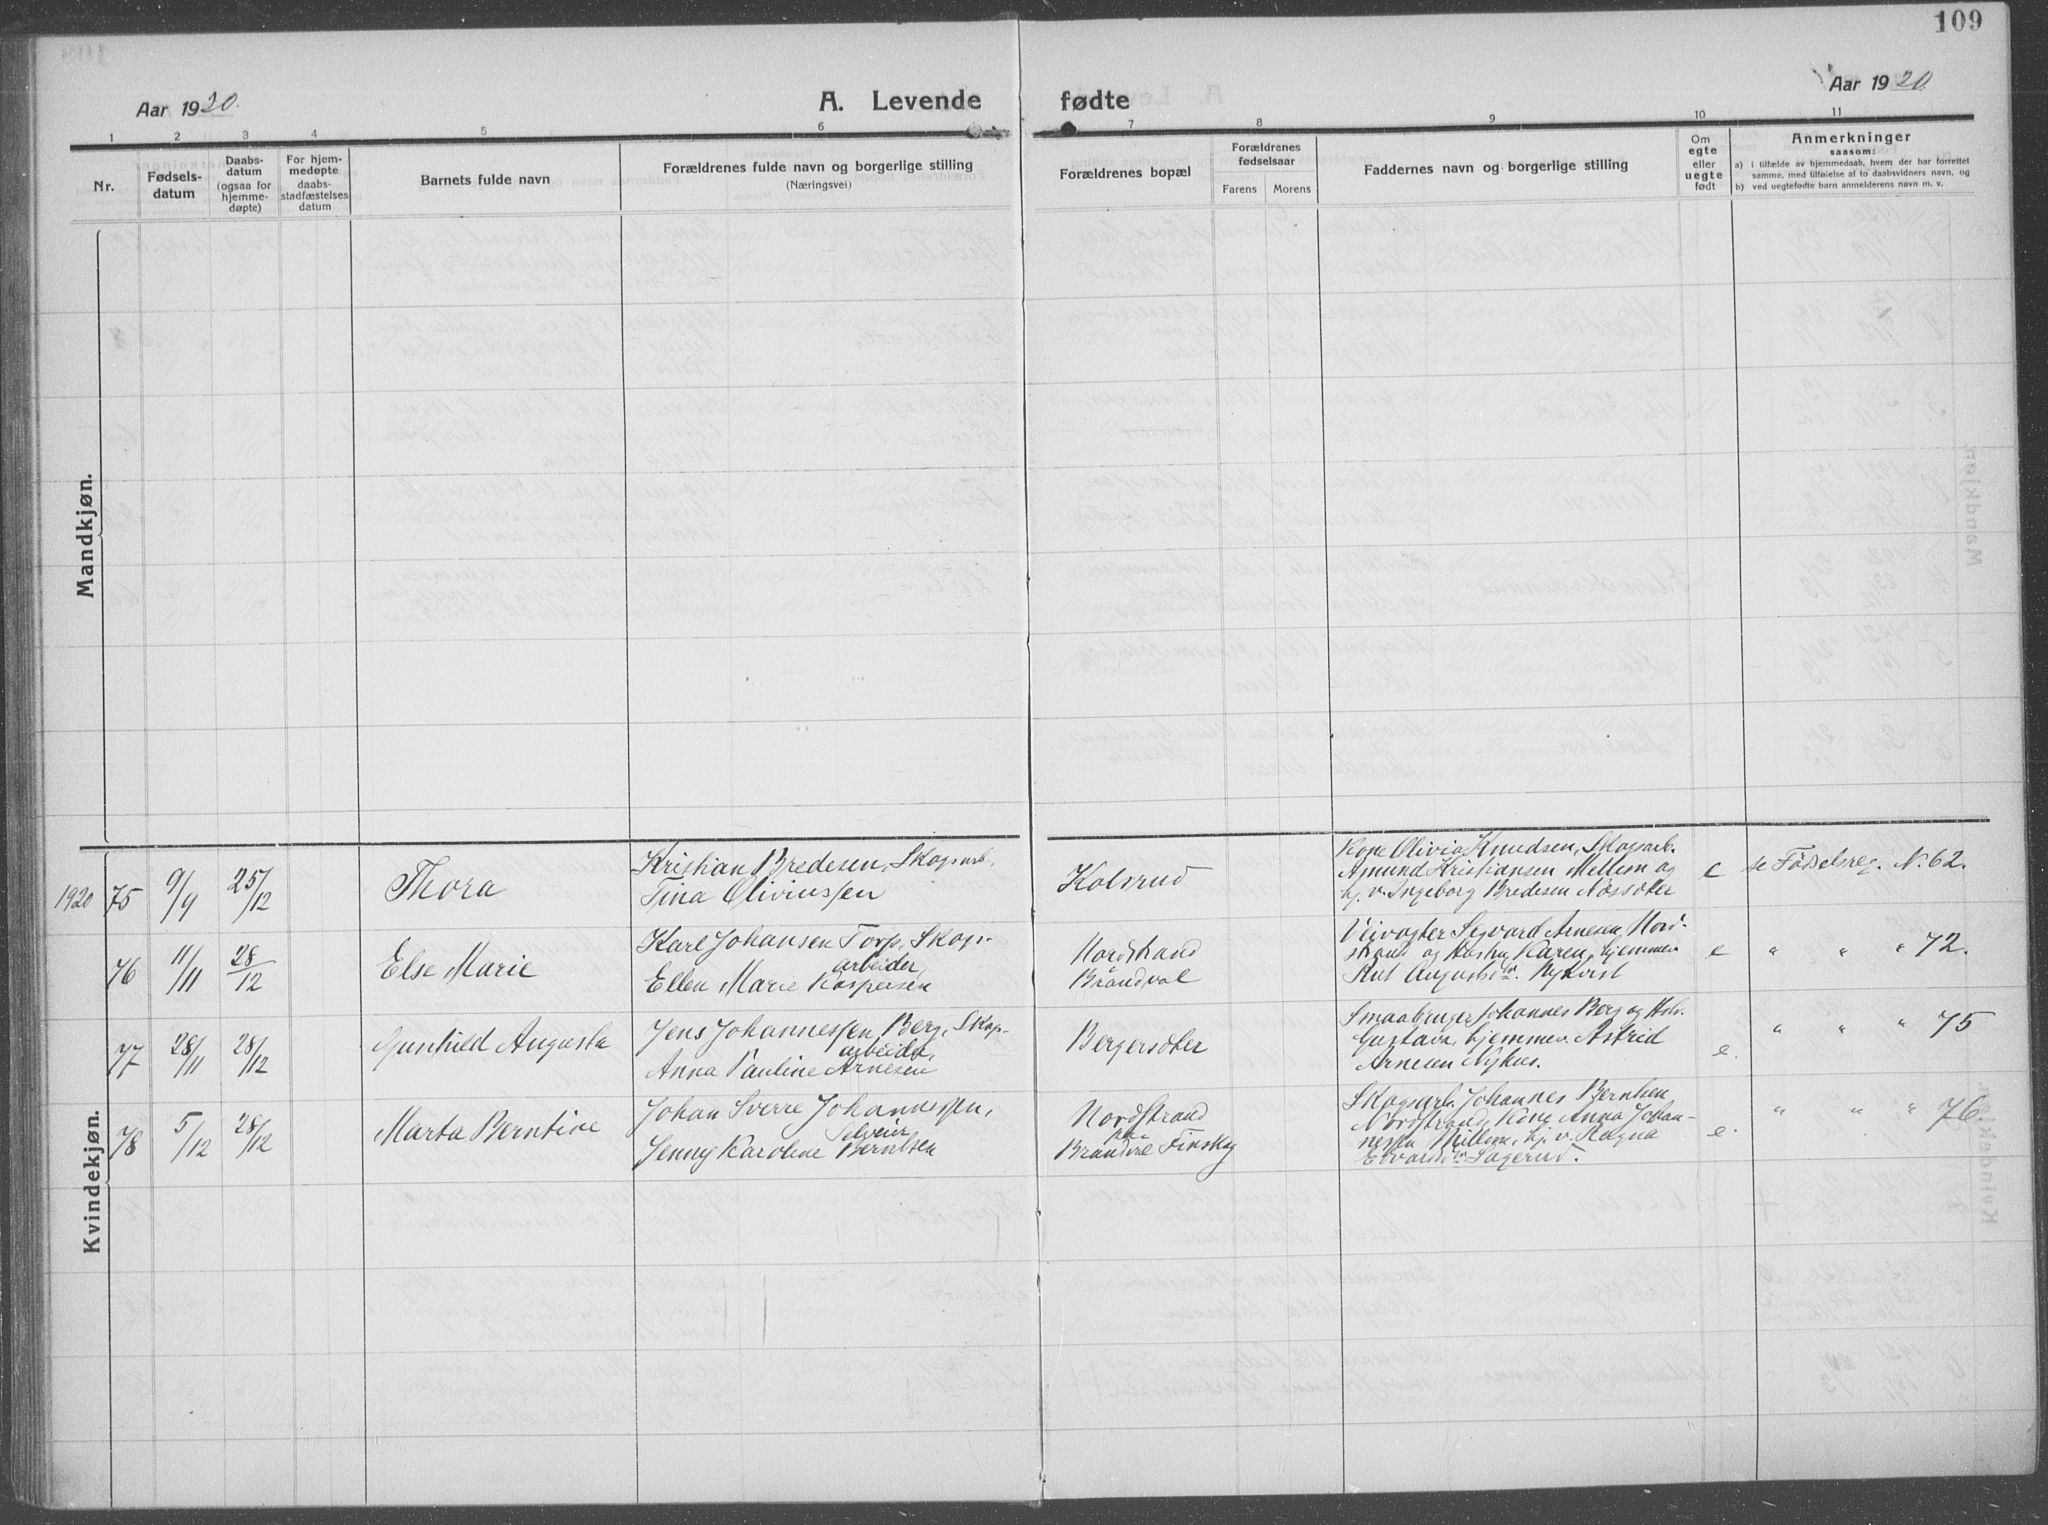 109
Aar 1920.
A. Levende fødte
Aar 1920.
1 2 3 4 5 6 7 8 9 10 11
Nr.
Fødsels-
datum
Daabs-
datum
(ogsaa for
hjemme-
døpte)
For hjem-
medøpte
daabs-
stadfæstelses
datum
Barnets fulde navn
Forældrenes fulde navn og borgerlige stilling
(Næringsvei)
Forældrenes bopæl
Forældrenes
fødselsaar
Farens Morens
Faddernes navn og borgerlige stilling
Om
egte
eller
uegte
født
Anmerkninger
saasom:
a) i tilfælde av hjemmedaab, hvem der har forrettet
samme, med tilføielse af to daabsvidners navn, og
b) ved uegtefødte barn anmelderens navn m. v.
Mandkjøn.
Kvindekjøn.
1920 75 9/9 25/12
Thora
Kristian Bredesen, Skogsarb.
Tina Oliviussen
Kolsrud
Kone Olivia Knudsen, Skogsarb.
Amund Kristiansen Mellem og
hj. v. Ingeborg Bredesen Næssæter
e
se Fødselsreg. N. 62.
76 11/11 28/12
Else Marie
Karl Johansen Torp, Skogs-
arbeider,
Ellen Marie Kaspersen
Nordstrand
Brandval
Veivogter Sigvard Arnesen Nord-
strand og Hustru Karen, hjemmev.
Rut Augustsdtr. Nykvist
e
" " " 72.
77 28/11 28/12
Gunhild Augusta
Jens Johannessen Berg, Skog-
arbeider,
Anna Pauline Arnesen
Bergersæter
Smaabruger Johannes Berg og Hstr.
Gustava, hjemmev. Astrid
Arnesen Nyhus.
e.
" " " 75
78 5/12 28/12
Marta Berntine
Johan Sverre Johannessen,
Selveier
Jenny Karoline Berntsen
Nordstrand
paa
Brandval Finskog
Skogsarb. Johannes Berntsen
Nordstrand, Kone Anna Johan-
nessen Millom, hj. v. Ragna
Edvardsdtr. Sagerud.
e.
" " " 76.